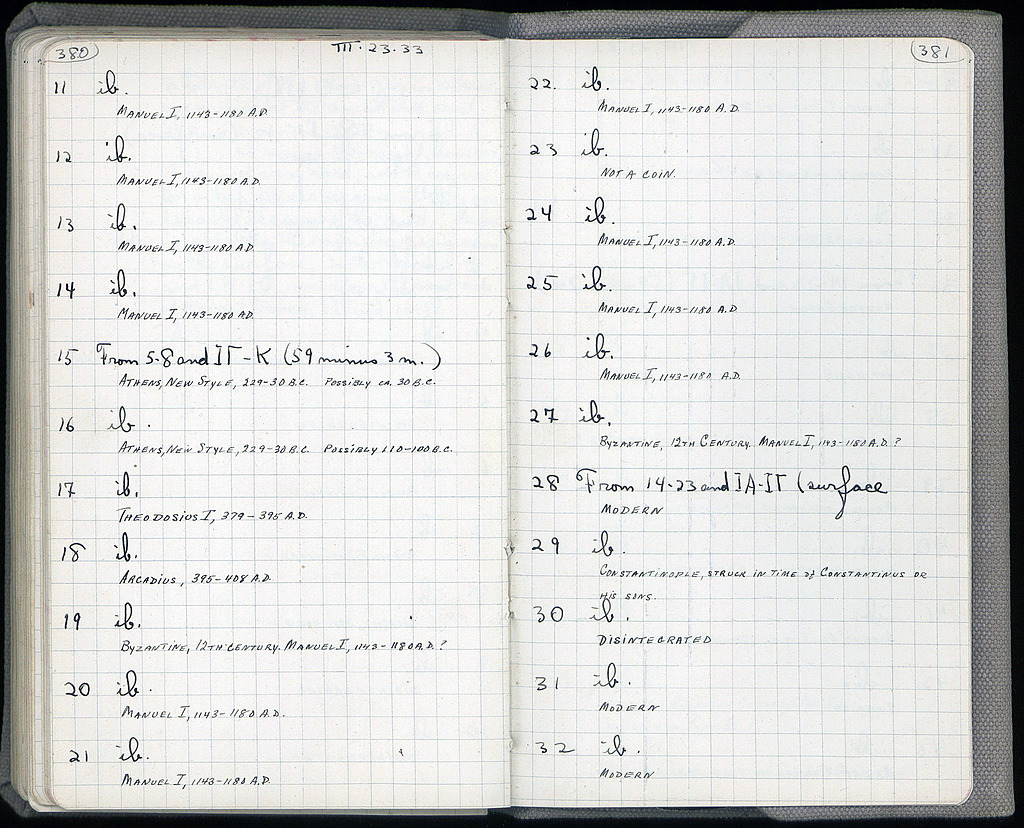 380
III·23·33
11 ib.
MANUEL I, 1143-1180 A.D.
12 ib.
MANUEL I, 1143-1180 A.D.
13 ib.
MANUEL I, 1143-1180 A.D.
14 ib.
MANUEL I, 1143-1180 A.D.
15 From 5-8 and IΓ-K (59 minus 3 m.)
ATHENS, NEW STYLE, 229-30 B.C. POSSIBLY CA. 30 B.C.
16 ib.
ATHENS, NEW STYLE, 229-30 B.C. POSSIBLY 110-100 B.C.
17 ib.
THEODOSIUS I, 379-395 A.D.
18 ib.
ARCADIUS, 395-408 A.D.
19 ib.
BYZANTINE, 12TH CENTURY. MANUEL I, 1143-1180 A.D.?
20 ib.
MANUEL I, 1143-1180 A.D.
21 ib.
MANUEL I, 1143-1180 A.D.
381
22. ib.
MANUEL I, 1143-1180 A.D.
23 ib.
NOT A COIN.
24 ib.
MANUEL I, 1143-1180 A.D.
25 ib.
MANUEL I, 1143-1180 A.D
26 ib.
MANUEL I, 1143-1180 A.D.
27 ib.
BYZANTINE, 12TH CENTURY. MANUEL I, 1143-1180 A.D.?
28 From 14-23 and IA-IΓ (surface
MODERN
29 ib.
CONSTANTINOPLE, STRUCK IN TIME of CONSTANTINUS OR
HIS SONS.
30 ib.
DISINTEGRATED
31 ib.
MODERN
32 ib.
MODERN